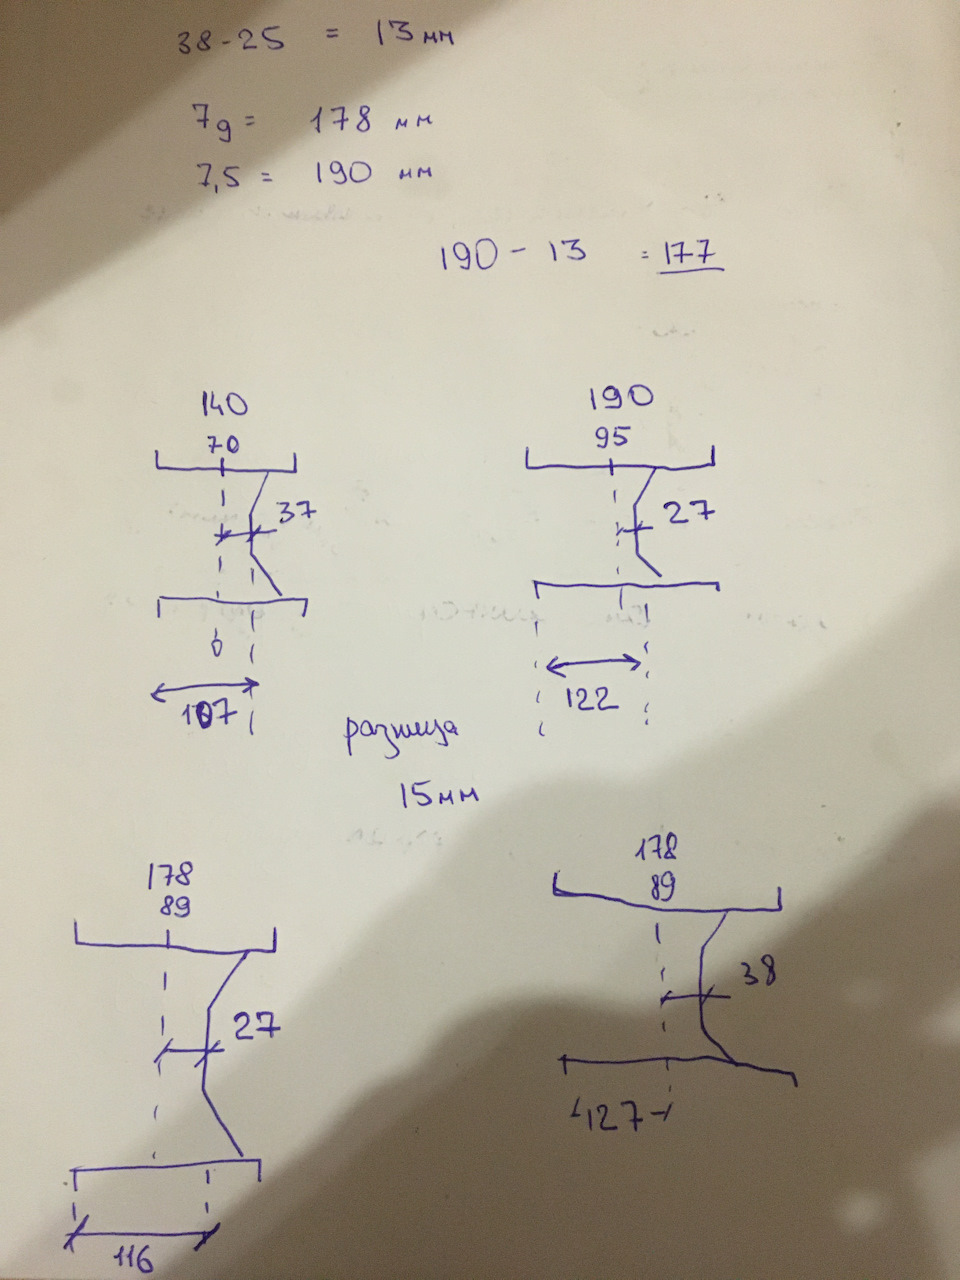 38-25 = 13мм
7д = 178 мм
7,5 = 190 мм
190 - 13 = 177
140
70
37
107
190
95
27
122
разница
15мм
178
89
27
116
178
89
38
127